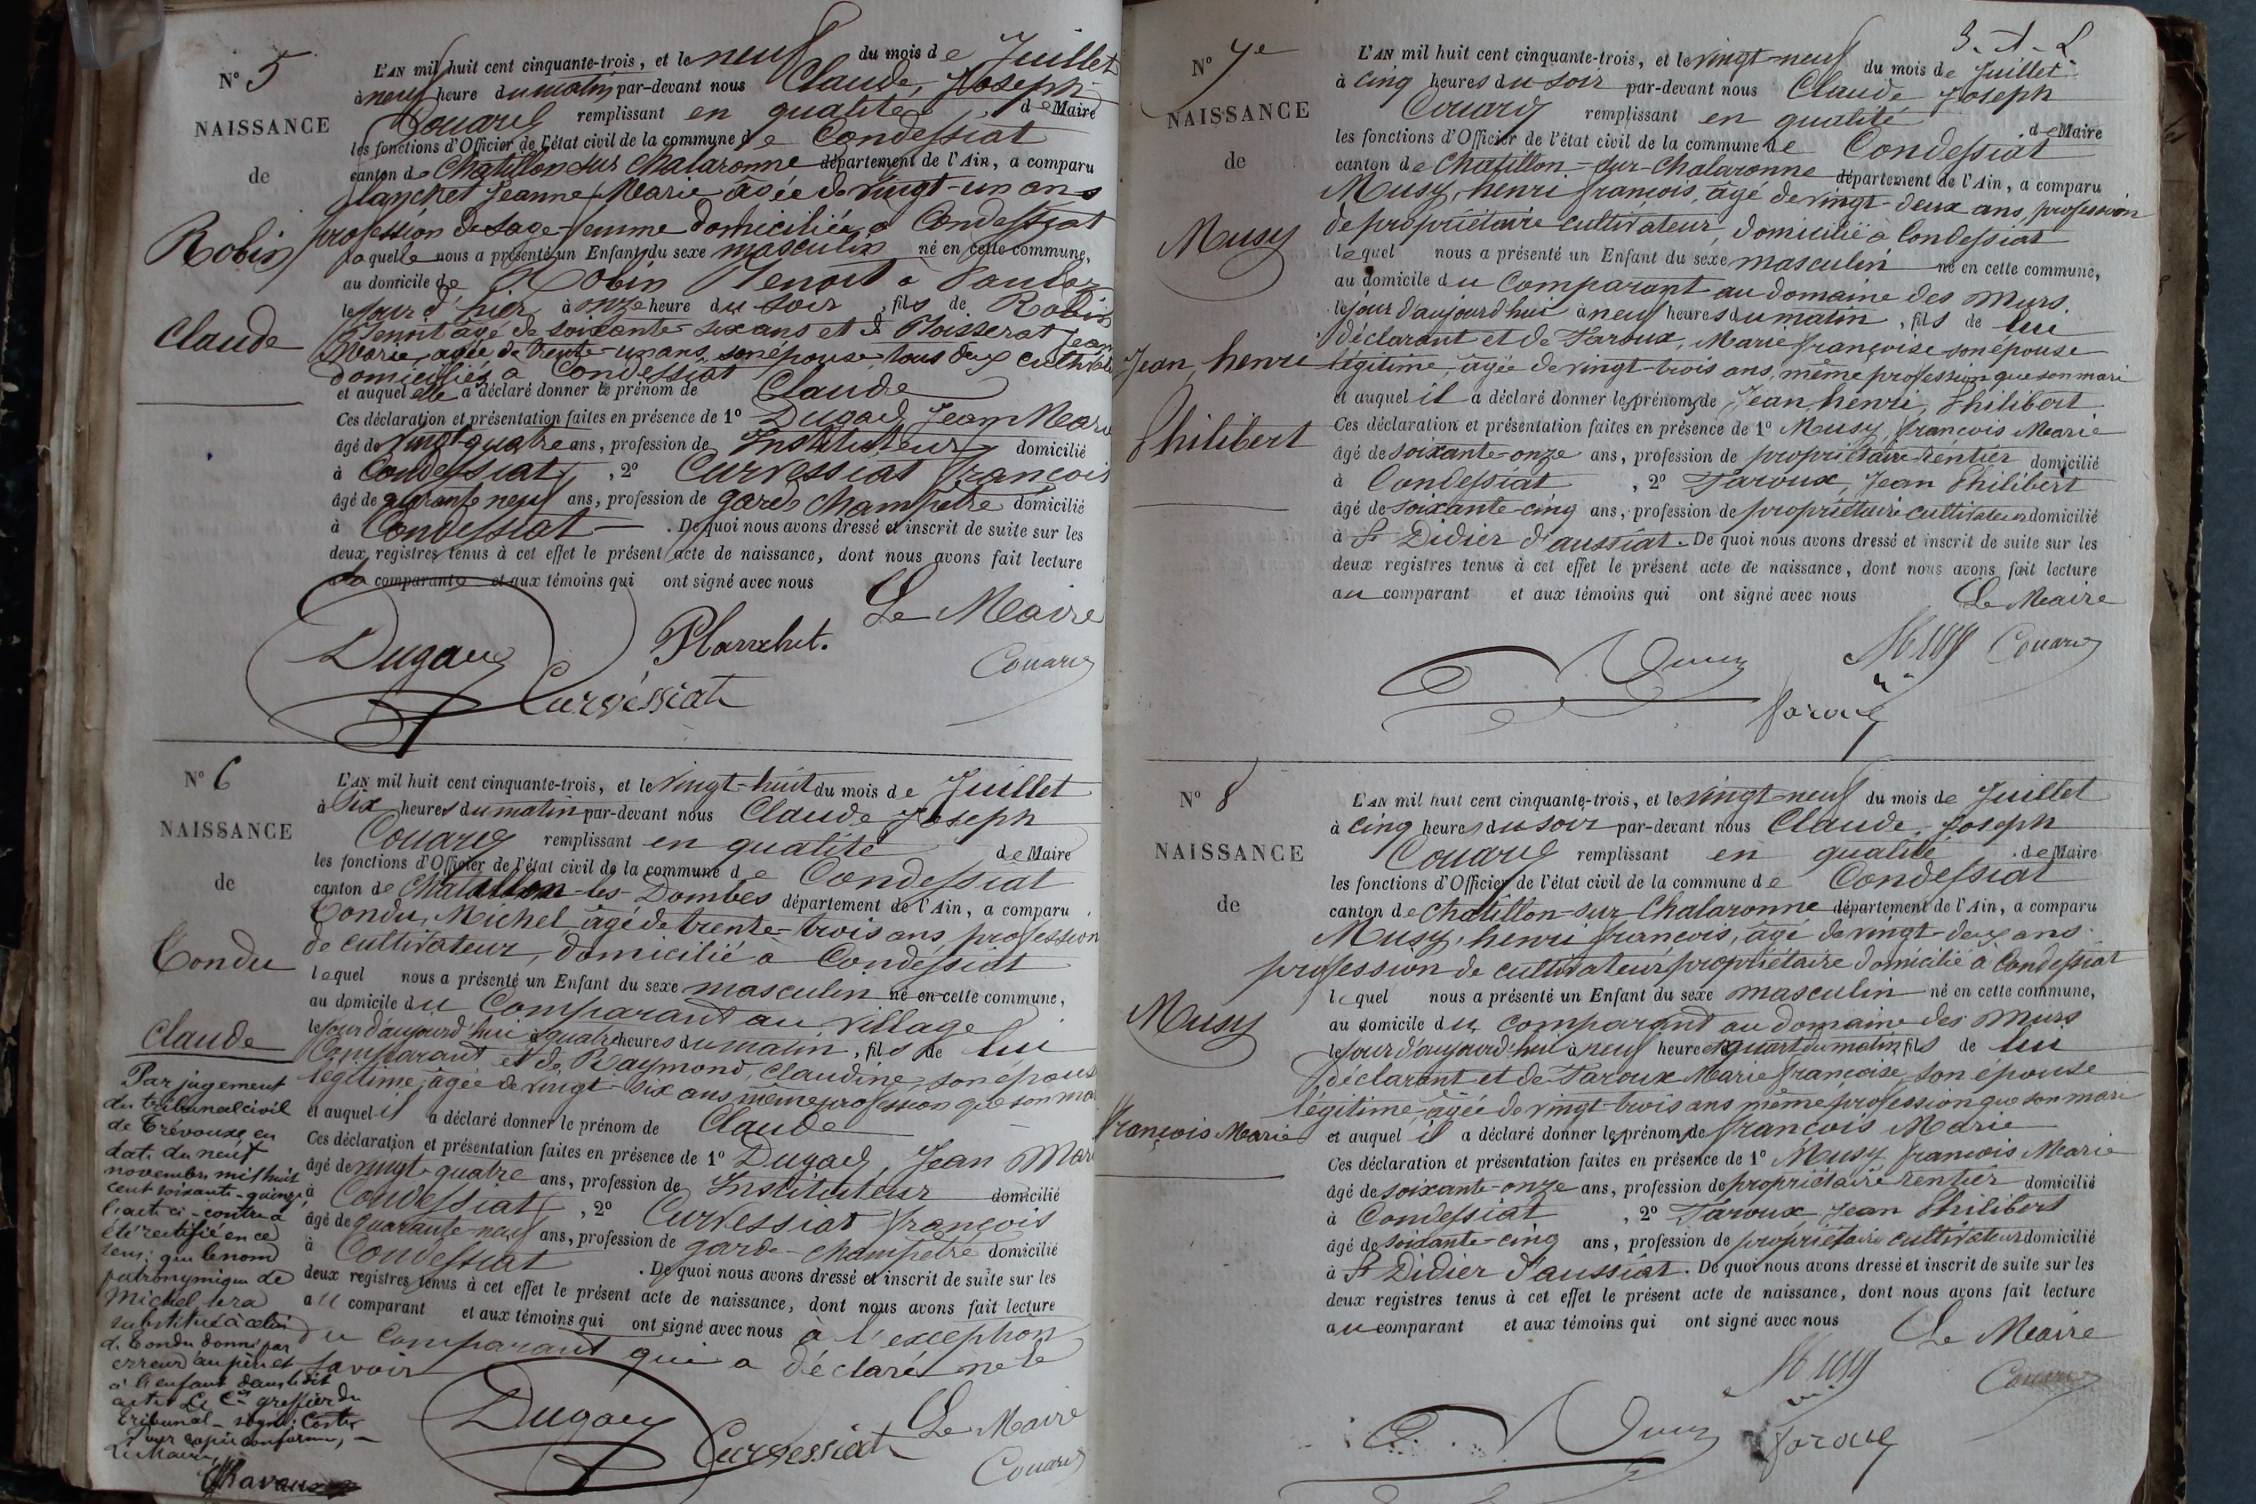 N° 5
NAISSANCE
de
Robin
Claude
L'AN mil huit cent cinquante-trois, et le neuf du mois de Juillet
à neuf heure du matin par-devant nous Claude, Joseph
Couard remplissant en qualité de Maire
les fonctions d'Officier de l'état civil de la commune de Condessiat
canton de Chatillon sur Chalaronne département de l'Ain, a comparu
Planchet Jeanne Marie âgée de vingt-un ans
profession de sage-femme domiciliée à Condessiat
laquelle nous a présenté un Enfant du sexe masculin né en cette commune,
au domicile de Robin Benoit à
le jour d'hier, à onze heure du soir, fils de Robin
Benoit âgé de soixante-six ans et de Moisserat Jean
Marie, agée de trente-un ans, son épouse tous deux cultivat
domiciliés à Condessiat
et auquel elle a déclaré donner le prénom de Claude
Ces déclaration et présentation faites en présence de 1° Dugad, Jean Marie
âgé de vingt quatre ans, profession de Instituteur domicilié
à Condessiat, 2° Curvessiat François
âgé de quarante neuf ans, profession de garde champêtre domicilié
à Condessiat. De quoi nous avons dressé et inscrit de suite sur les
deux registres tenus à cet effet le présent acte de naissance, dont nous avons fait lecture
à la comparante et aux témoins qui ont signé avec nous
Le Maire
Dugad
Planchet.
Curvessiat
Couard
N° 6
NAISSANCE
de
Condu
Claude
Par jugement
du tribunal civil
de Trévoux, en
date du neuf
novembre mil huit
cent soixante-quinze,
l'acte ci-contre a
été rectifié en ce
sens: que le nom
patronymique de
Michel sera
substitué à celui
de Condu donné par
erreur au père et
à l'enfant dans ledit
acte. Le Cis greffier du
tribunal - signé:
Pour copie conforme,
Le Maire,
L'AN mil huit cent cinquante-trois, et le vingt-huit du mois de Juillet
à Six heures du matin par-devant nous Claude Joseph
Couard remplissant en qualité de Maire
les fonctions d'Officier de l'état civil de la commune de Condessiat
canton de Chatillon-les-Dombes département de l'Ain, a comparu
Condu, Michel âgé de trente-trois ans, profession
de cultivateur, domicilié à Condessiat
lequel nous a présenté un Enfant du sexe masculin né en cette commune,
au domicile du comparant au village
le jour d'aujourd'hui à quatre heures du matin, fils de lui
comparant et de Raymond, Claudine, son épouse
légitime, âgée de vingt-six ans même profession que son mari
et auquel il a déclaré donner le prénom de Claude
Ces déclaration et présentation faites en présence de 1° Dugad, Jean Mari
âgé de vingt-quatre ans, profession de Instituteur domicilié
à Condessiat, 2° Curvessiat François
âgé de quarante-neuf ans, profession de garde-champêtre domicilié
à Condessiat. De quoi nous avons dressé et inscrit de suite sur les
deux registres tenus à cet effet le présent acte de naissance, dont nous avons fait lecture
au comparant et aux témoins qui ont signé avec nous à l'exception
du comparant qui a déclaré ne le
savoir
Le Maire
Dugad
Curvessiat
Couard
3. A. L
N° 7e
NAISSANCE
de
Musy
Jean, henri
Philibert
L'AN mil huit cent cinquante-trois, et le vingt-neuf du mois de Juillet
à cinq heures du soir par-devant nous Claude Joseph
Couard remplissant en qualité de Maire
les fonctions d'Officier de l'état civil de la commune de Condessiat
canton de Chatillon-sur-Chalaronne département de l'Ain, a comparu
Musy, henri françois, âgé de vingt-deux ans, profession
de propriétaire cultivateur, domicilié à Condessiat
lequel nous a présenté un Enfant du sexe masculin né en cette commune,
au domicile du comparant au domaine des Murs.
le jour d'aujourd'hui à neuf heures du matin, fils de lui
déclarant et de Taroux, Marie françoise son épouse
légitime, âgée de vingt-trois ans, même profession que son mari
et auquel il a déclaré donner les prénoms de Jean, henri, Philibert
Ces déclaration et présentation faites en présence de 1° Musy, françois Marie
âgé de soixante-onze ans, profession de propriétaire-rentier domicilié
à Condessiat, 2° Taroux, Jean Philibert
âgé de soixante-cinq ans, profession de propriétaire cultivateur domicilié
à St Didier d'aussiat. De quoi nous avons dressé et inscrit de suite sur les
deux registres tenus à cet effet le présent acte de naissance, dont nous avons fait lecture
au comparant et aux témoins qui ont signé avec nous
Le Maire
Musy
Couard
Taroux
N° 8
NAISSANCE
de
Musy
François Marie
L'AN mil huit cent cinquante-trois, et le vingt-neuf du mois de Juillet
à cinq heures du soir par-devant nous Claude, Joseph
Couard remplissant en qualité de Maire
les fonctions d'Officier de l'état civil de la commune de Condessiat
canton de Chatillon-sur-Chalaronne département de l'Ain, a comparu
Musy, henri françois, âgé de vingt-deux ans.
profession de cultivateur propriétaire domicilié à Condessiat
lequel nous a présenté un Enfant du sexe masculin né en cette commune,
au domicile du comparant au domaine des Murs
le jour d'aujourd'hui à neuf heures quart du matin, fils de lui
déclarant et de Taroux Marie françoise, son épouse
légitime, âgée de vingt-trois ans même profession que son mari
et auquel il a déclaré donner les prénoms de françois Marie
Ces déclaration et présentation faites en présence de 1° Musy françois Marie
âgé de soixante-onze ans, profession de propriétaire rentier domicilié
à Condessiat, 2° Taroux, Jean Philibert
âgé de soixante-cinq ans, profession de propriétaire cultivateur domicilié
à St Didier d'aussiat. De quoi nous avons dressé et inscrit de suite sur les
deux registres tenus à cet effet le présent acte de naissance, dont nous avons fait lecture
au comparant et aux témoins qui ont signé avec nous
Le Maire
Musy
Couard
Taroux